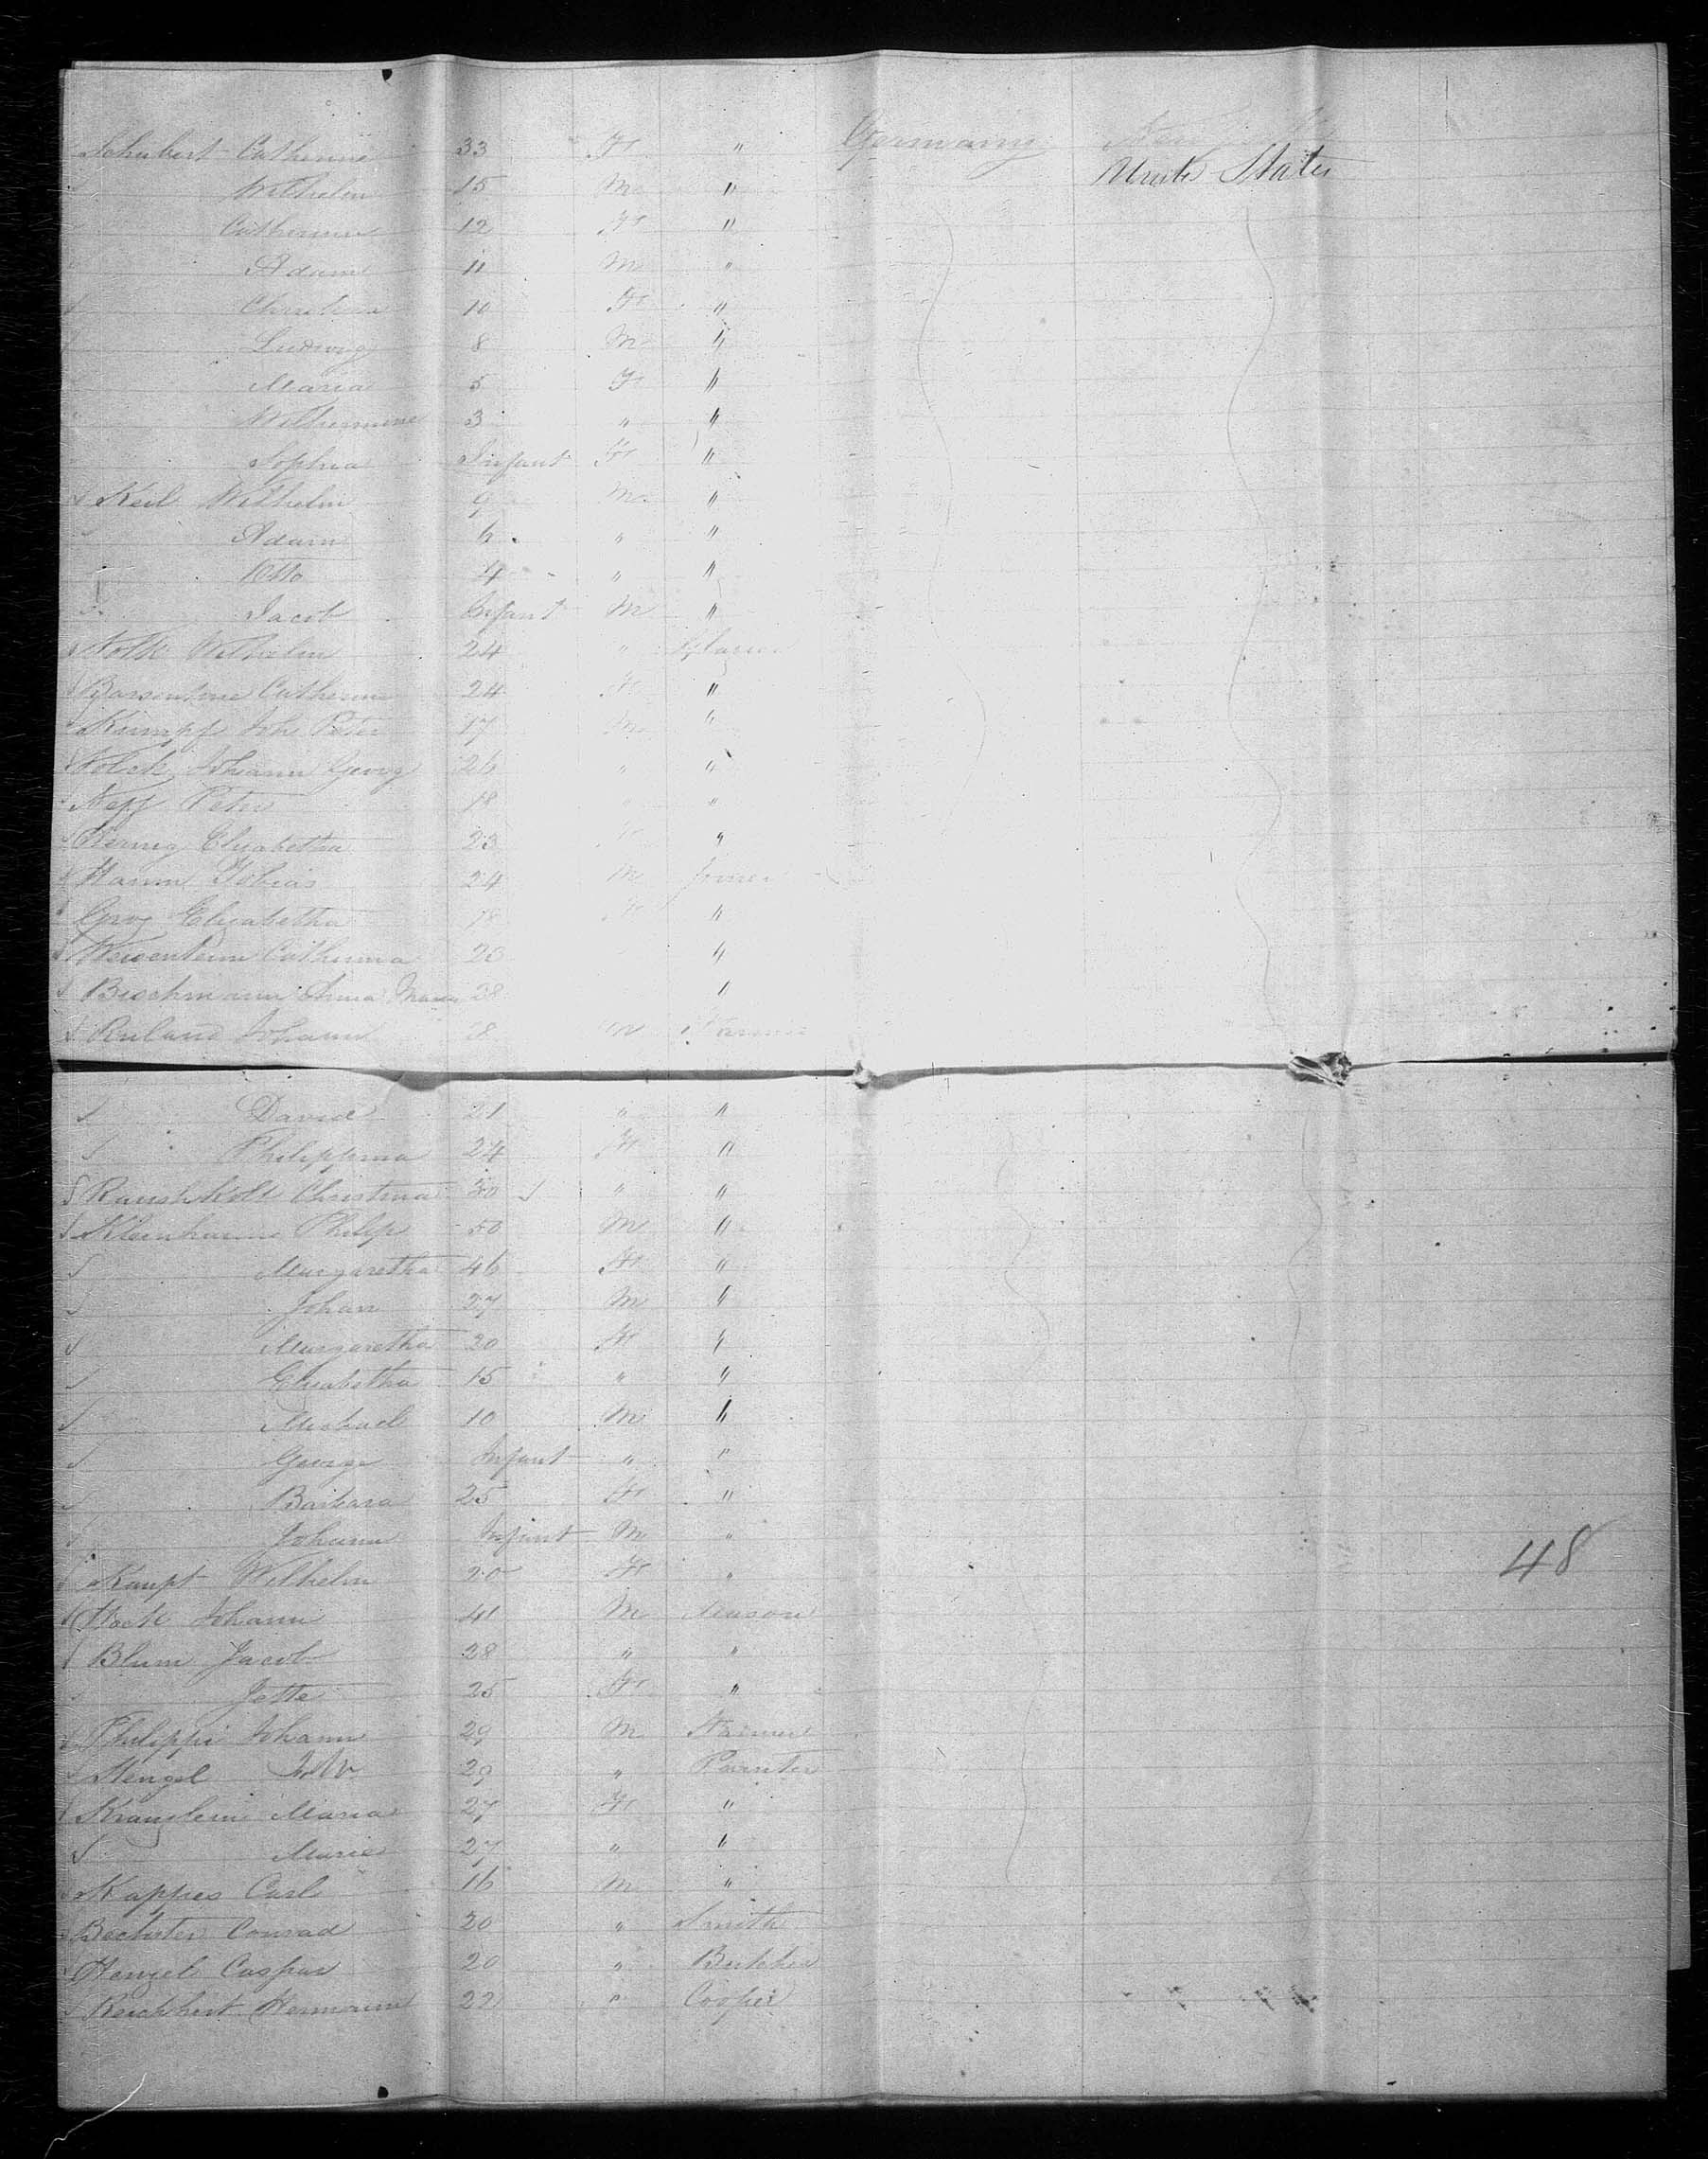 Schubert Catherine 33 F " Germany New
Wilhelm 15 M " United States
Catherine 12 F "
Adam 11 M "
Christina 10 F "
Ludwig 8 M "
Maria 5 F "
Wilhermine 3 " "
Sophia Infant F "
Keil Wilhelm 9 M "
Adam 6 " "
Otto 4 " "
Jacob Infant M "
Wilhelm 24 "
Catherine 24 F "
Kumpf Joh Peter 17 M "
Volck Johann Georg 26 " "
Neff Peter 18 " "
Elisabetha 23 "
Hamm Tobias 24 M Joiner
Elisabetha 18 F "
Catherina 20 "
Bischmann Anna Maria 28 "
Ruland Johann 28 M Farmer
David 21 " "
Philippina 24 F "
Christina 30 " "
Kleinhanns Philip 50 M "
Margaretha 46 F "
Johan 27 M "
Margaretha 20 F "
Elisabetha 15 " "
Michael 10 M "
George Infant " "
Barbara 25 F "
Johann Infant M "
Wilhelm 20 F "
Hock Johann 41 M Mason
Blum Jacob 28 " "
Jette 25 F "
Philippi Johann 29 M Farmer
Stengel 29 " Painter
Maria 27 F "
Marie 27 " "
Kappes Carl 16 M "
Conrad 20 " Smith
Hengel Caspar 20 " Butcher
Reichhert Hermann 22 " Cooper
48